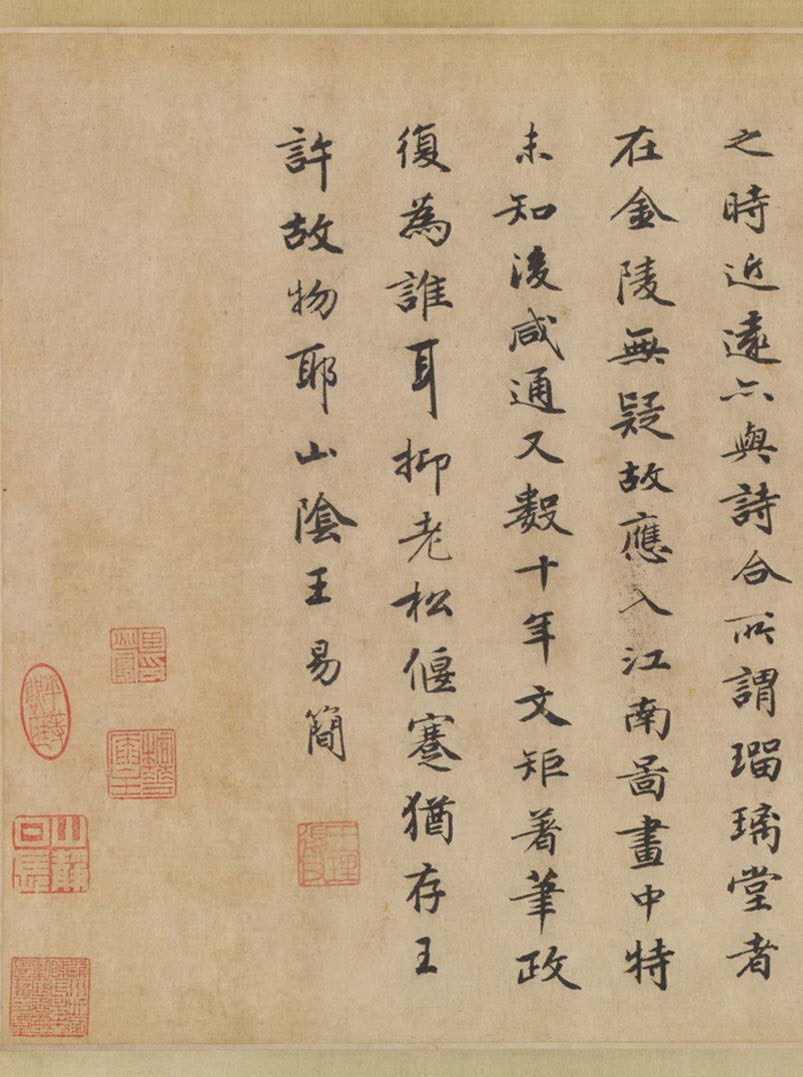 之時近遠亦與詩合所謂瑠璃堂者
在金陵無疑故應入江南啚畫中特
未知後咸通又數十年文矩著筆政
復為誰耳抑老松偃蹇猶存王
許故物耶山陰王易簡